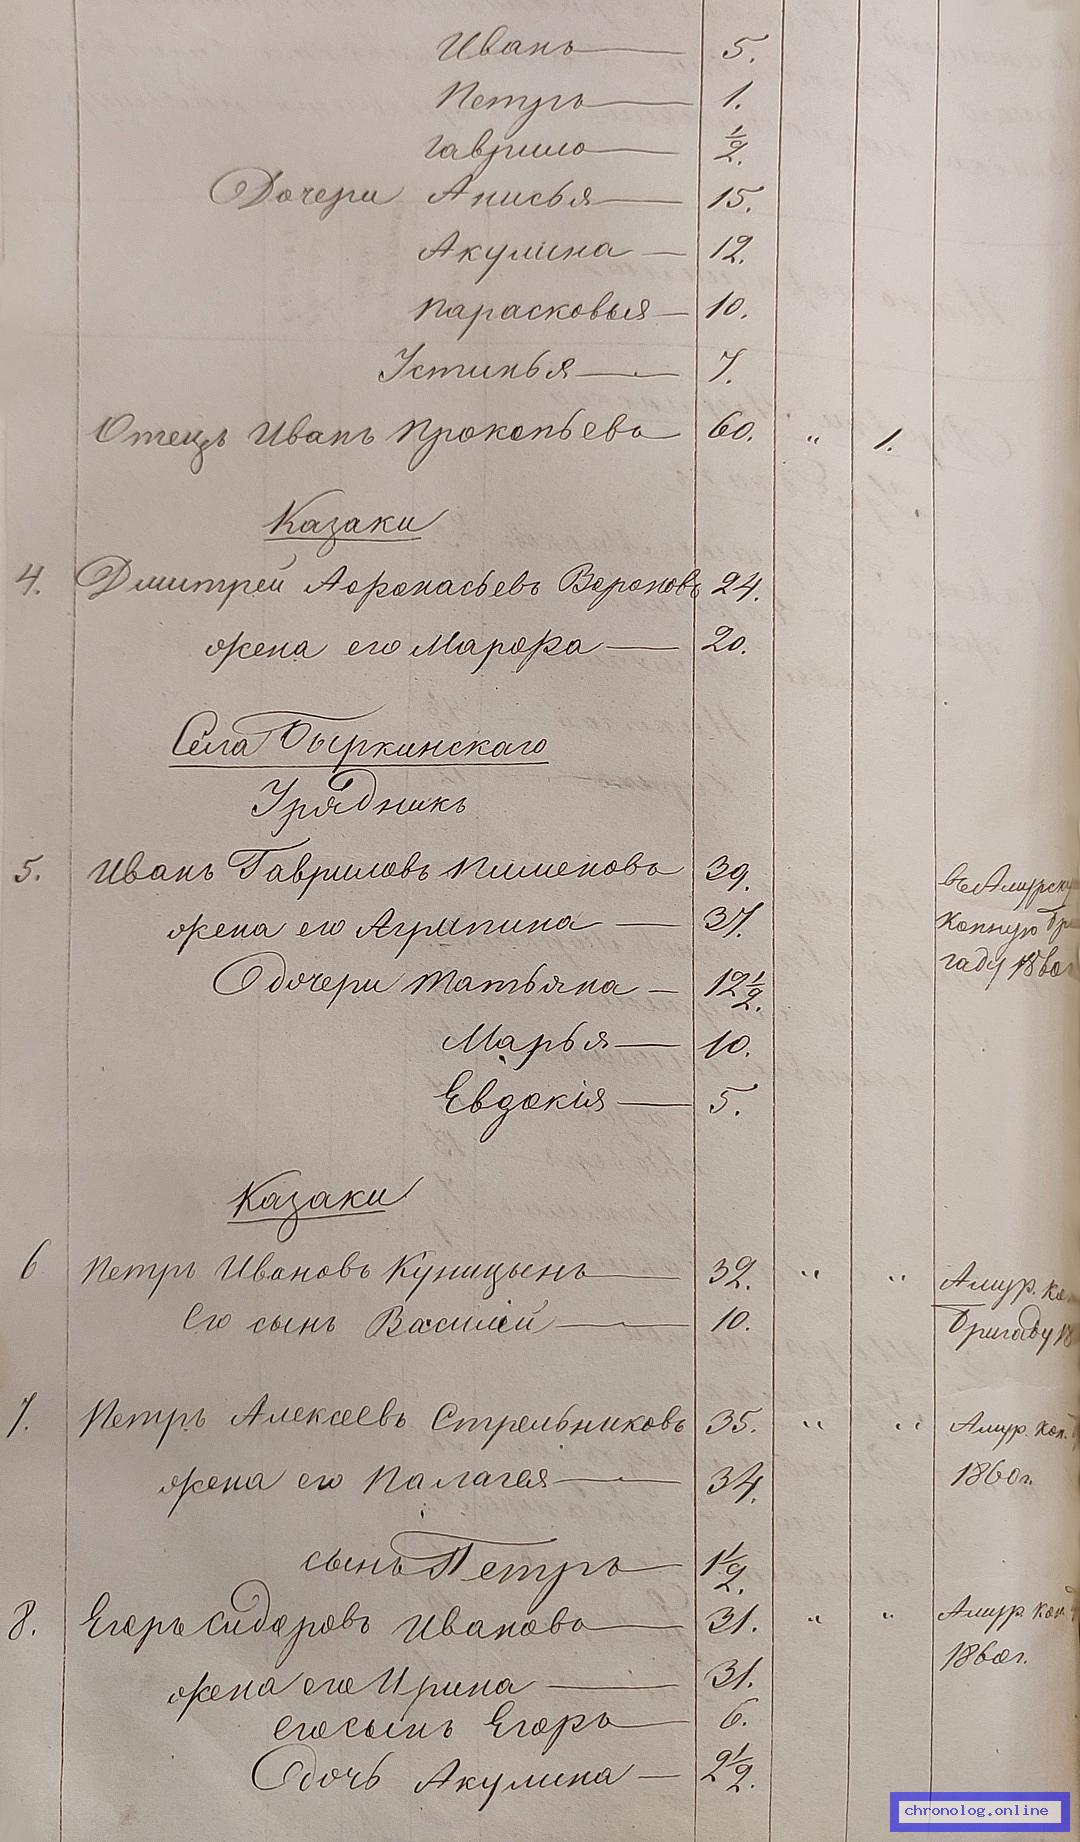 Иванъ 5.
Петръ 1.
Гаврило 1/2.
Дочери Анисья 15.
Акулина 12.
Парасковья 10.
Устинья 7.
Отецъ Иванъ Прокопьевъ 60. " 1.
Казаки
4. Дмитрей Афонасьевъ Вороновъ 24.
жена его Марфа 20.
Села Быркинскаго
Урядникъ
5. Иванъ Гавриловъ Пименовъ 39. въ Амурску
жена его Агрипина 37. Конную Бри
гаду 1860
Дочери Татьяна 12 1/2.
Марья 10.
Евдокія 5.
Казаки
6 Петръ Ивановъ Куницынъ 32. " " Амур. ко
Его сынъ Василей 10. Бригаду 18
7. Петръ Алексеевъ Стрельниковъ 35. " " Амур. кон.
жена его Палагея 34. 1860 г.
сынъ Петръ 1 1/2.
8. Егоръ Сидоровъ Ивановъ 31. " " Амур. кон
жена его Ирина 31. 1860 г.
его сынъ Егоръ 6.
Дочь Акулина 2 1/2.
chronolog.online